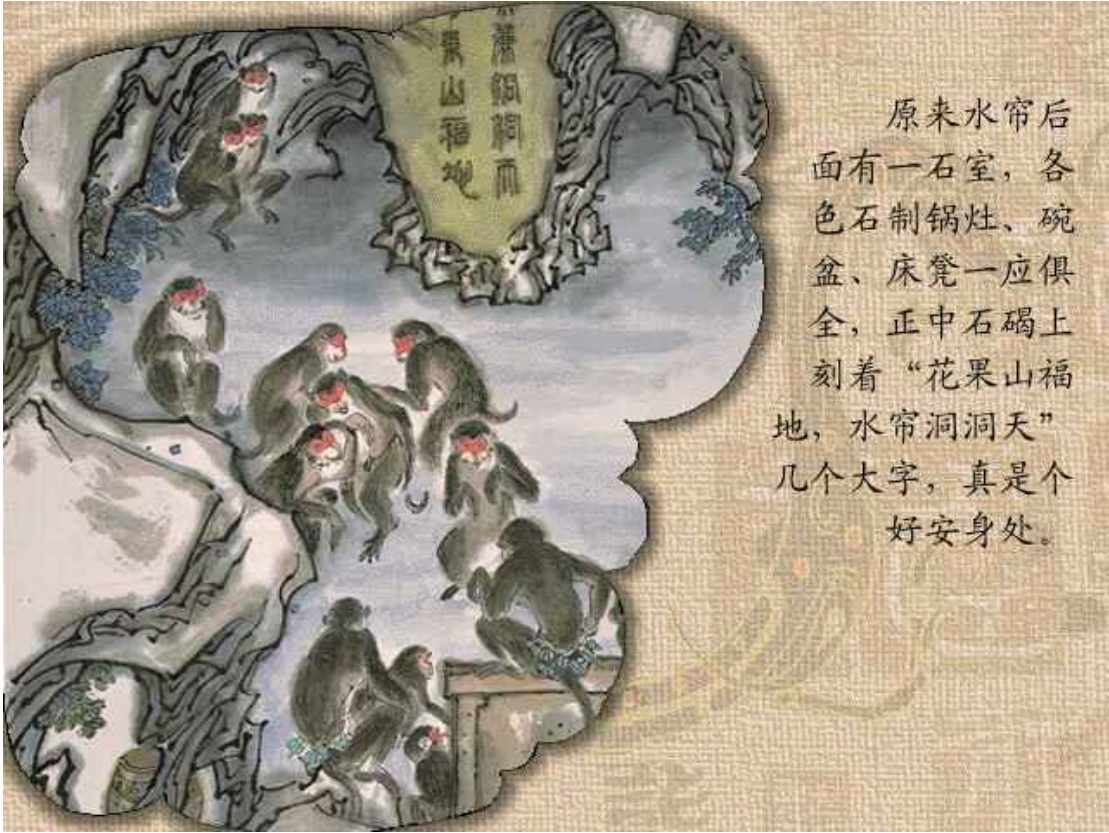 簾洞洞天
果山福地
原来水帘后
面有一石室，各
色石制锅灶、碗
盆、床凳一应俱
全，正中石碣上
刻着“花果山福
地，水帘洞洞天”
几个大字，真是个
好安身处。